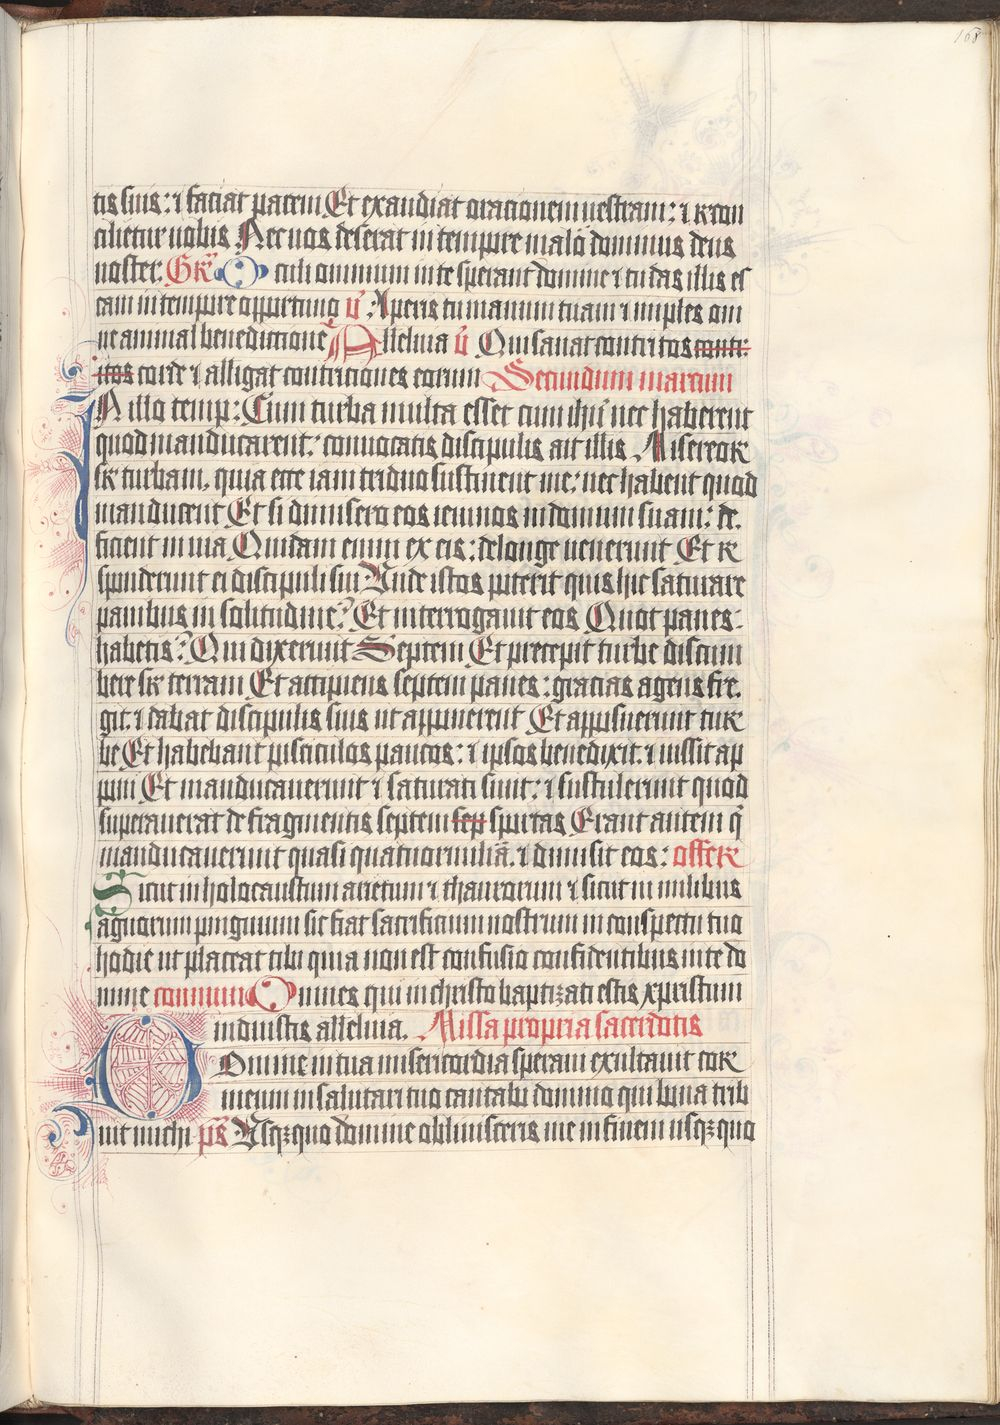 168
tis suis: ⁊ faciat pacem Et exaudiat oracionem vestram: ⁊ recon
cilietur uobis Nec uos deserat in tempore malo dominus deus
noster. Gr̄ Oculi omnium in te sperant domine ⁊ tu das illis es
cam in tempore opportuno v̄ Aperis tu manum tuam ⁊ imples om
ne animal benedictione Alleluia v̄ Qui sanat contritos contri
itos corde ⁊ alligat contriciones eorum Secundum marcum
In illo temp: Cum turba multa esset cum ihū nec haberent
quod manducarent: conuocatis discipulis ait illis. Misereor
sr turbam. quia ecce iam triduo sustinent me: nec habent quod
manducent Et si dimisero eos ieiunos in domum suam: de.
ficient in uia Quidam enim ex eis: delonge uenerunt Et re
sponderunt ei discipuli sui Unde istos poterit quis hic saturare
panibus in solitudine? Et interrogauit eos Quot panes-
habetis? Qui dixerunt Septem Et precepit turbe discum
bere sr terram Et accipiens septem panes: gracias agens fre.
git. ⁊ dabat discipulis suis ut apponerent Et apposuerunt tur
be Et habebant pisciculos paucos: ⁊ ipsos benedixit. ⁊ iussit ap
poni Et manducauerunt ⁊ saturati sunt: ⁊ sustulerunt quod
superauerat de fragmentis septem sep sportas Erant autem q̄
manducauerunt quasi quatuormiliā. ⁊ dimisit eos: offer
Sicut in holocaustum arietum ⁊ thaurorum ⁊ sicut in milibus
agnorum pinguium sic fiat sacrificium nostrum in conspectu tuo
hodie ut placeat tibi quia non est confusio confidentibus in te do
mine commun Omnes qui in christo baptizati estis xpristum
induistis alleluia. Missa propria sacerdotis
Domine in tua misericordia speraui exultauit cor
meum in salutari tuo cantabo domino qui bona trib
uit michi ps̄ Usqꝫquo domine obliuisceris me in finem usqꝫquo